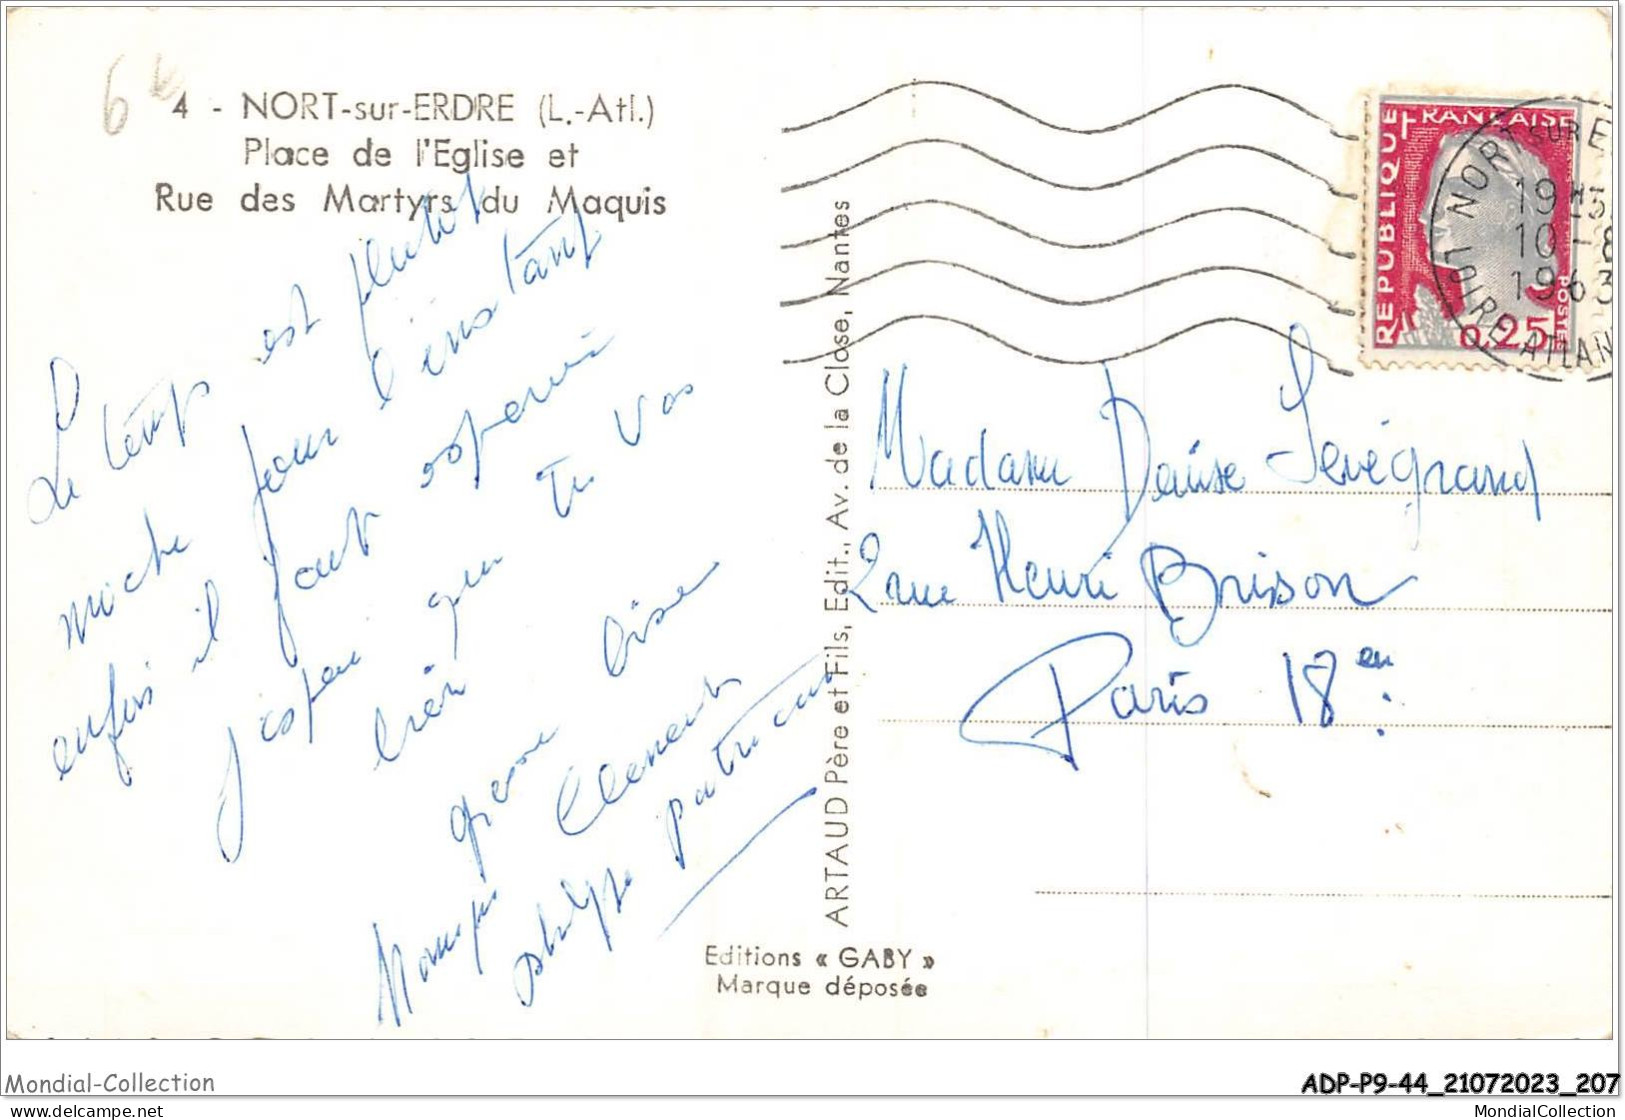 6
4 - NORT-sur-ERDRE (L.-Atl.)
Place de l'Eglise et
Rue des Martyrs du Maquis
Le temps est plutot
moche pour l'instant
enfin il faut esperons
j'espere que tu vas
bien
grosse bise
Clement
philippe patricia
ARTAUD Père et Fils, Edit., Av. de la Close, Nantes
Editions « GABY »
Marque déposée
REPUBLIQUE FRANCAISE
POSTE
0,25
NORT SUR E
19 H 15
10 - 8
1963
LOIRE ATLAN
Madame Denise Sevégrand
2 rue Henri Brisson
Paris 18 em
Mondial-Collection
ADP-P9-44_21072023_207
Copyright MondialCollection
MondialCollection